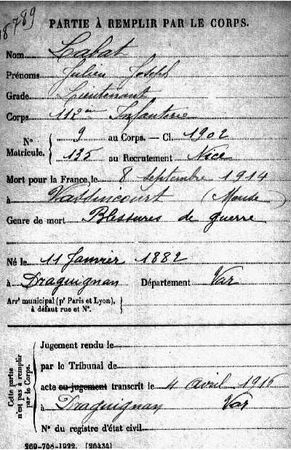 18789
PARTIE À REMPLIR PAR LE CORPS.
Nom Labat
Prénoms Julien Joseph
Grade Lieutenant
Corps 112e Infanterie
N° 9 au Corps. — Cl. 1902
Matricule. 135 au Recrutement Nice
Mort pour la France le 8 septembre 1914
à Vassincourt (Meuse)
Genre de mort Blessures de guerre
Né le 11 Janvier 1882
à Draguignan Département Var
Arrt municipal (pr Paris et Lyon),
à défaut rue et N°.
Cette partie
n'est pas à remplir
par le Corps.
Jugement rendu le
par le Tribunal de
acte ou jugement transcrit le 4 avril 1915
à Draguignan Var
N° du registre d'état civil
269-708-1922. [26434]